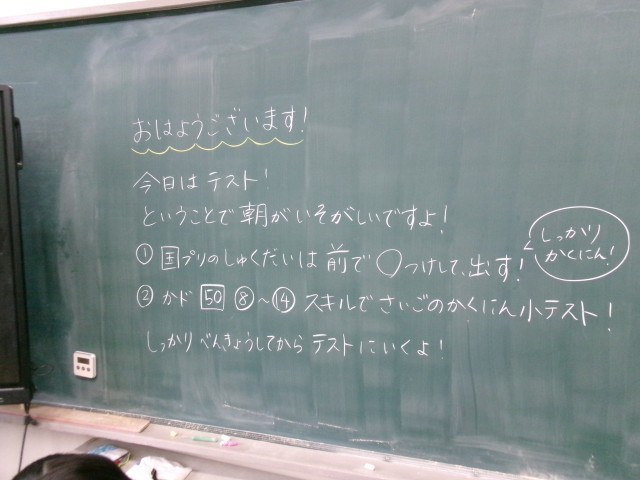 おはようございます!
今日は テスト!
ということで 朝がいそがしいですよ!
① 国プリのしゅくだいは 前で ○つけして、出す!
しっかり
かくにん!
② かド 50 ⑧~⑭ スキルでさいごのかくにん小テスト!
しっかり べんきょうしてから テストにいくよ!